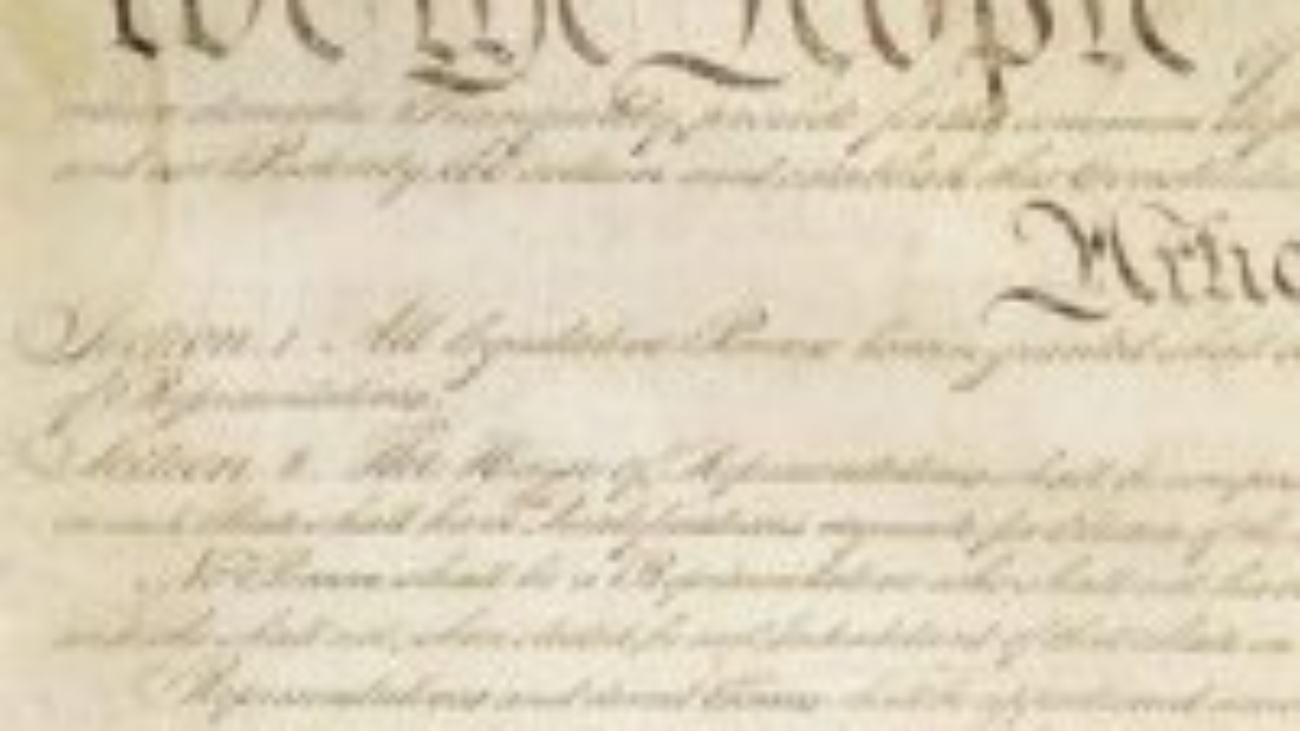 We the People
insure domestic Tranquility, provide for the common
and our Posterity, do ordain and establish this Constitution
Artic
Section. 1. All legislative Powers herein granted shall
of Representatives.
Section. 2. The House of Representatives shall be composed
in each State shall have the Qualifications requisite for Electors of the
No Person shall be a Representative who shall not have
and who shall not, when elected, be an Inhabitant of that State in
Representatives and direct Taxes shall be apportioned among